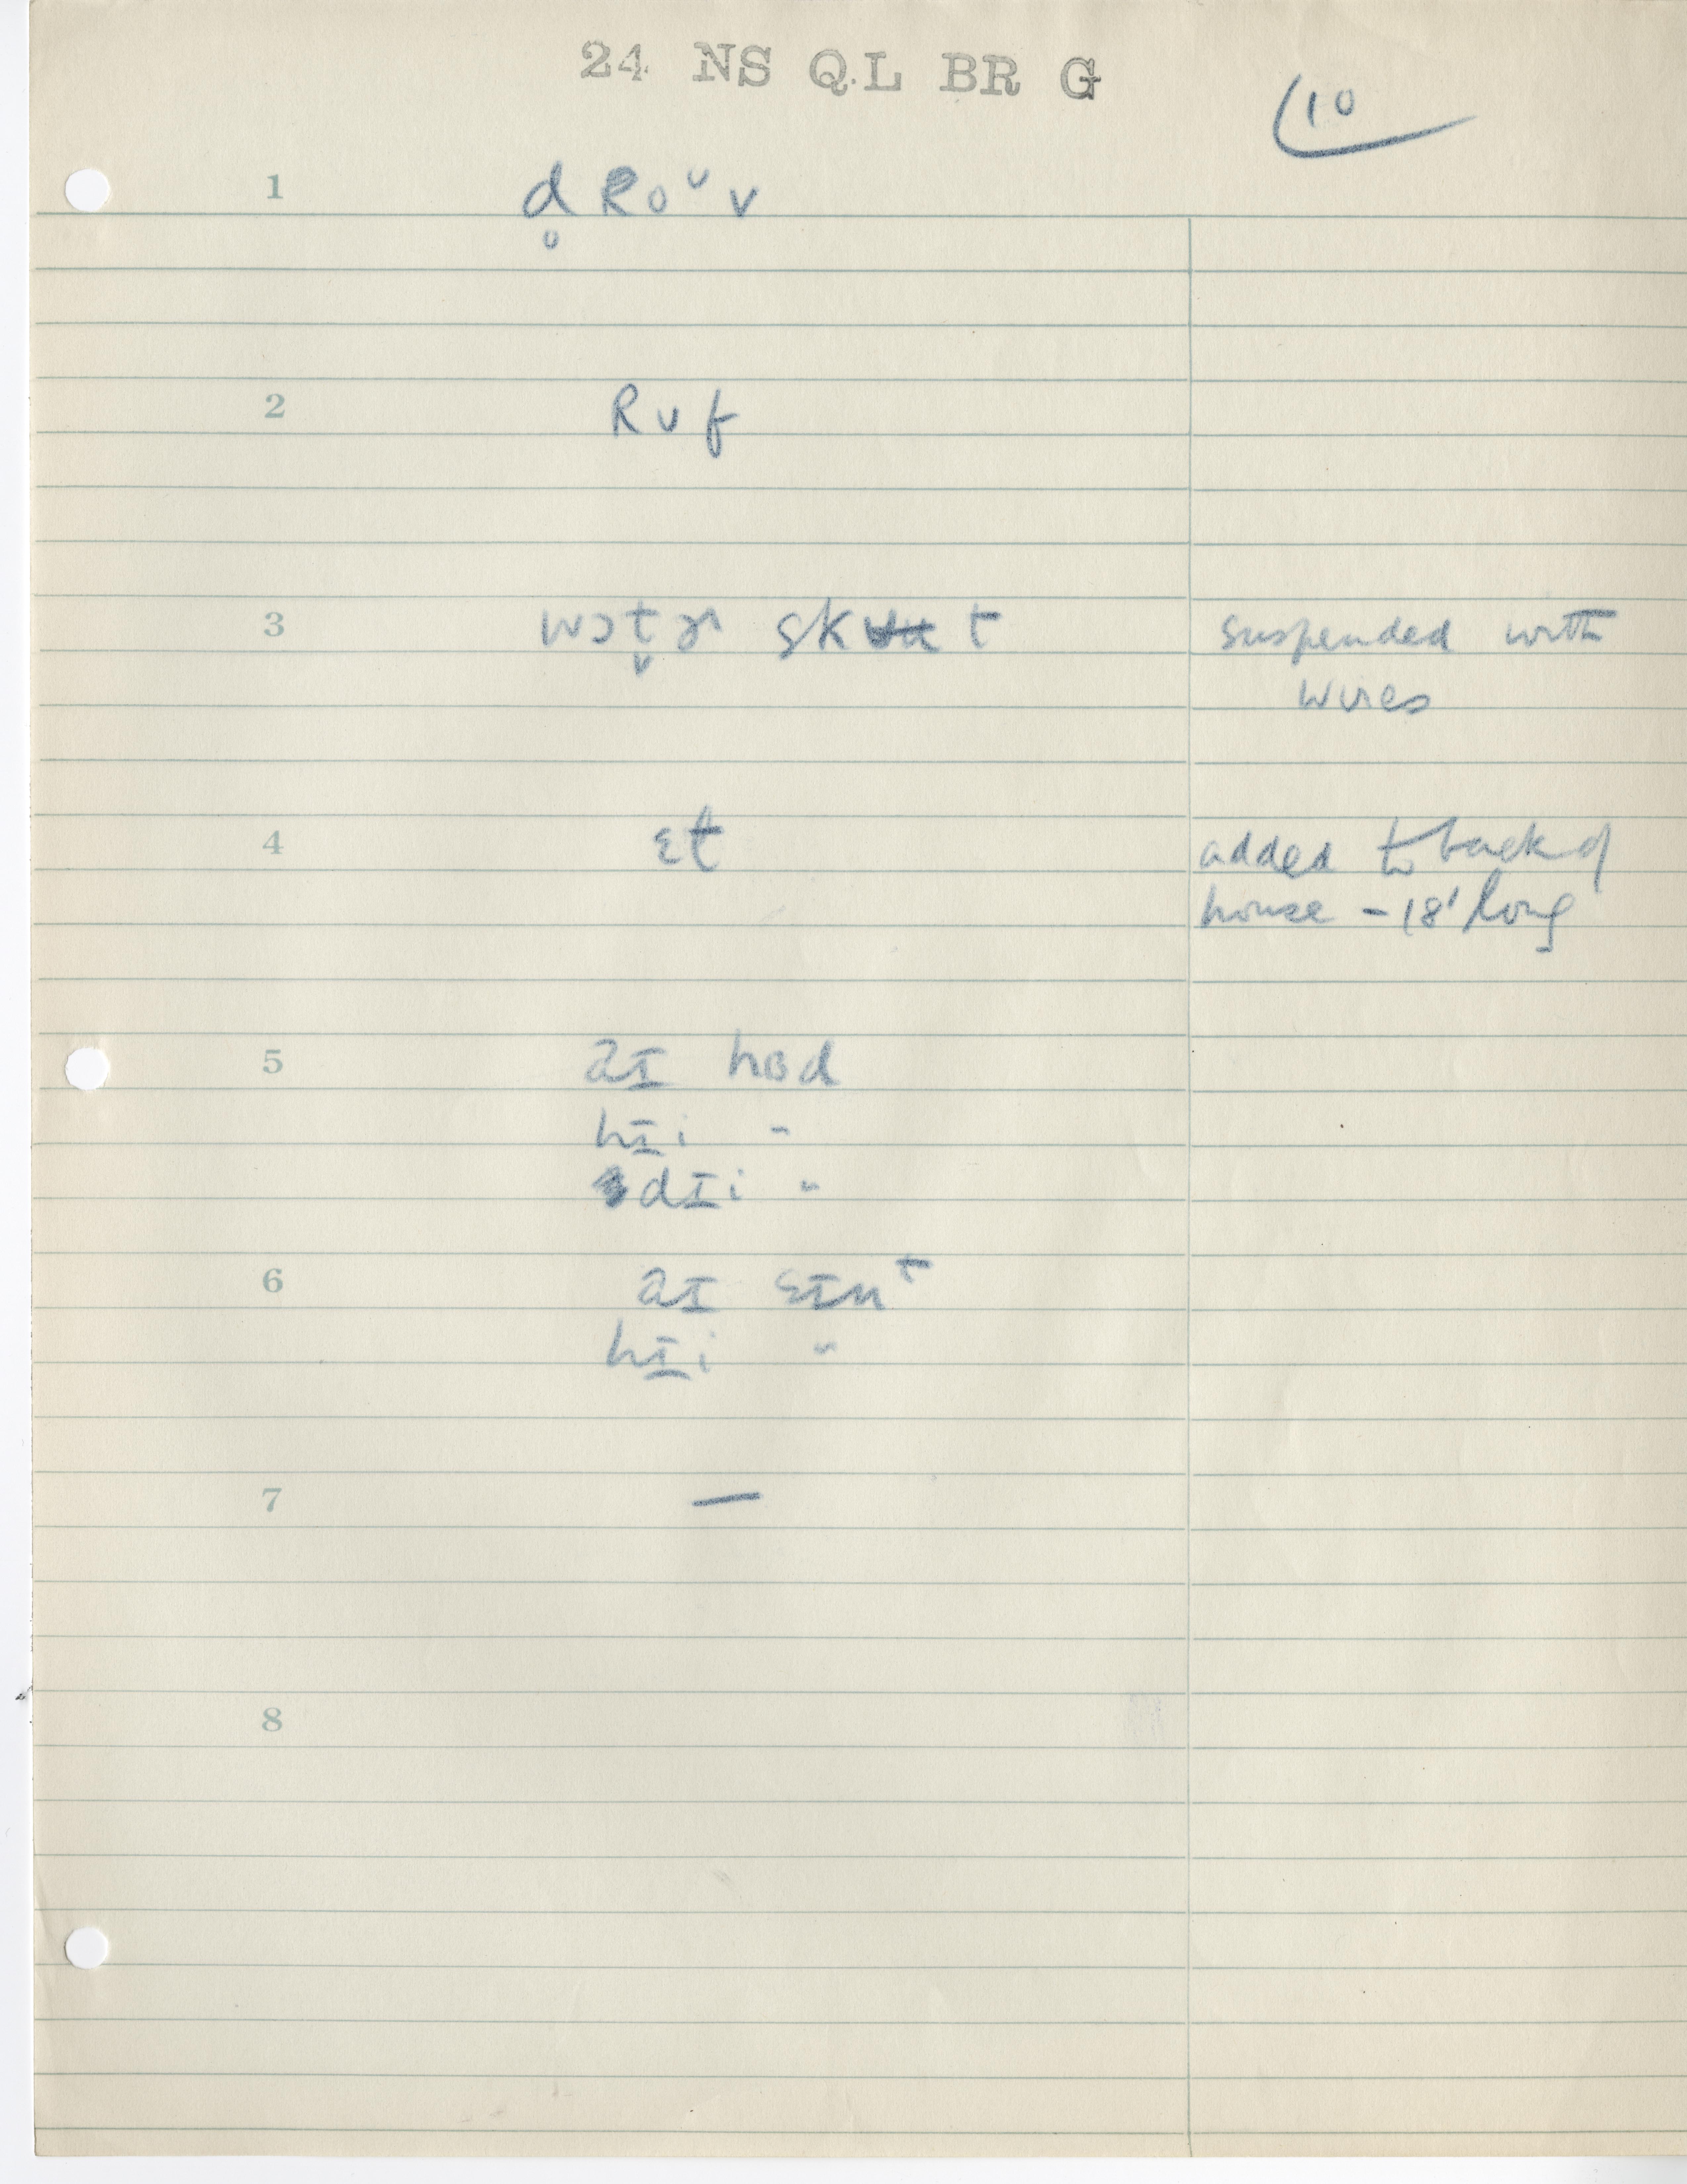 24 NS QL BR G
10
1 d̥ Roᴜv
2 Rᴜf
3 wɔt̬ɚ skʉʉt suspended with
wires
4 ɛt added to back of
house – 18' long
5 aɪ hɐd
hɪi "
dɪi "
6 aɪ ɛɪnᵗ
hɪi "
7 —
8